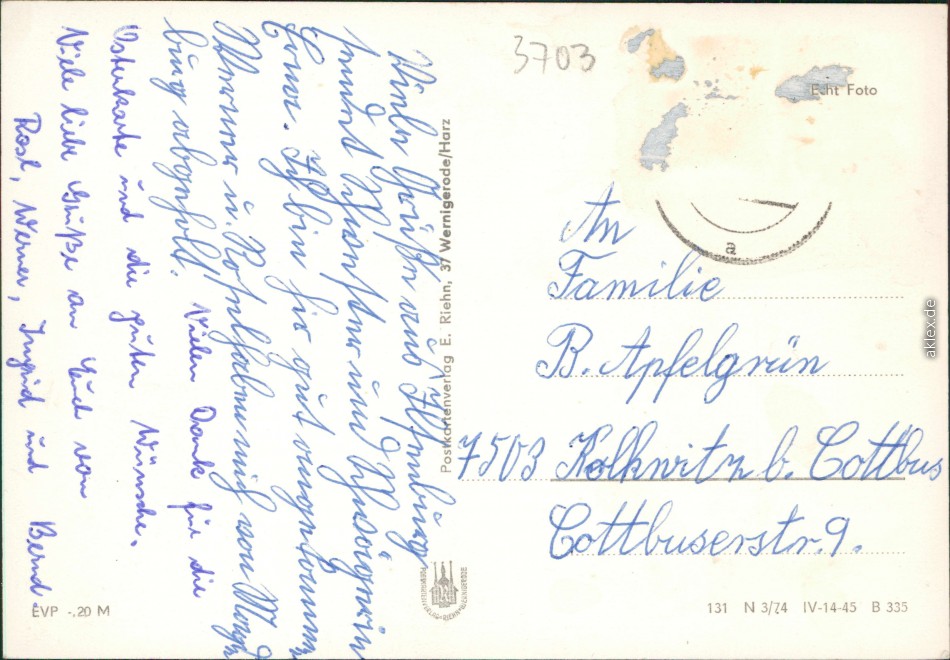 3703
Echt Foto
a
An
Familie
B. Apfelgrün
7503 Kolkwitz b. Cottbus
Cottbuserstr. 9.
Viele Grüße aus Ilsenburg
sendet Schwester und Schwägerin
Erna. Ich bin hier gut angekommen
Werner u. Rosl haben mich von
burg abgeholt.
Vielen Dank für die
Osterkarte und die guten Wünsche.
Viele liebe Grüße an Euch von
Rosl, Werner, Ingrid und Bernd.
Postkartenverlag E. Riehn, 37 Wernigerode/Harz
EVP -,20 M
131 N 3/74 IV-14-45 B 335
aklex.de